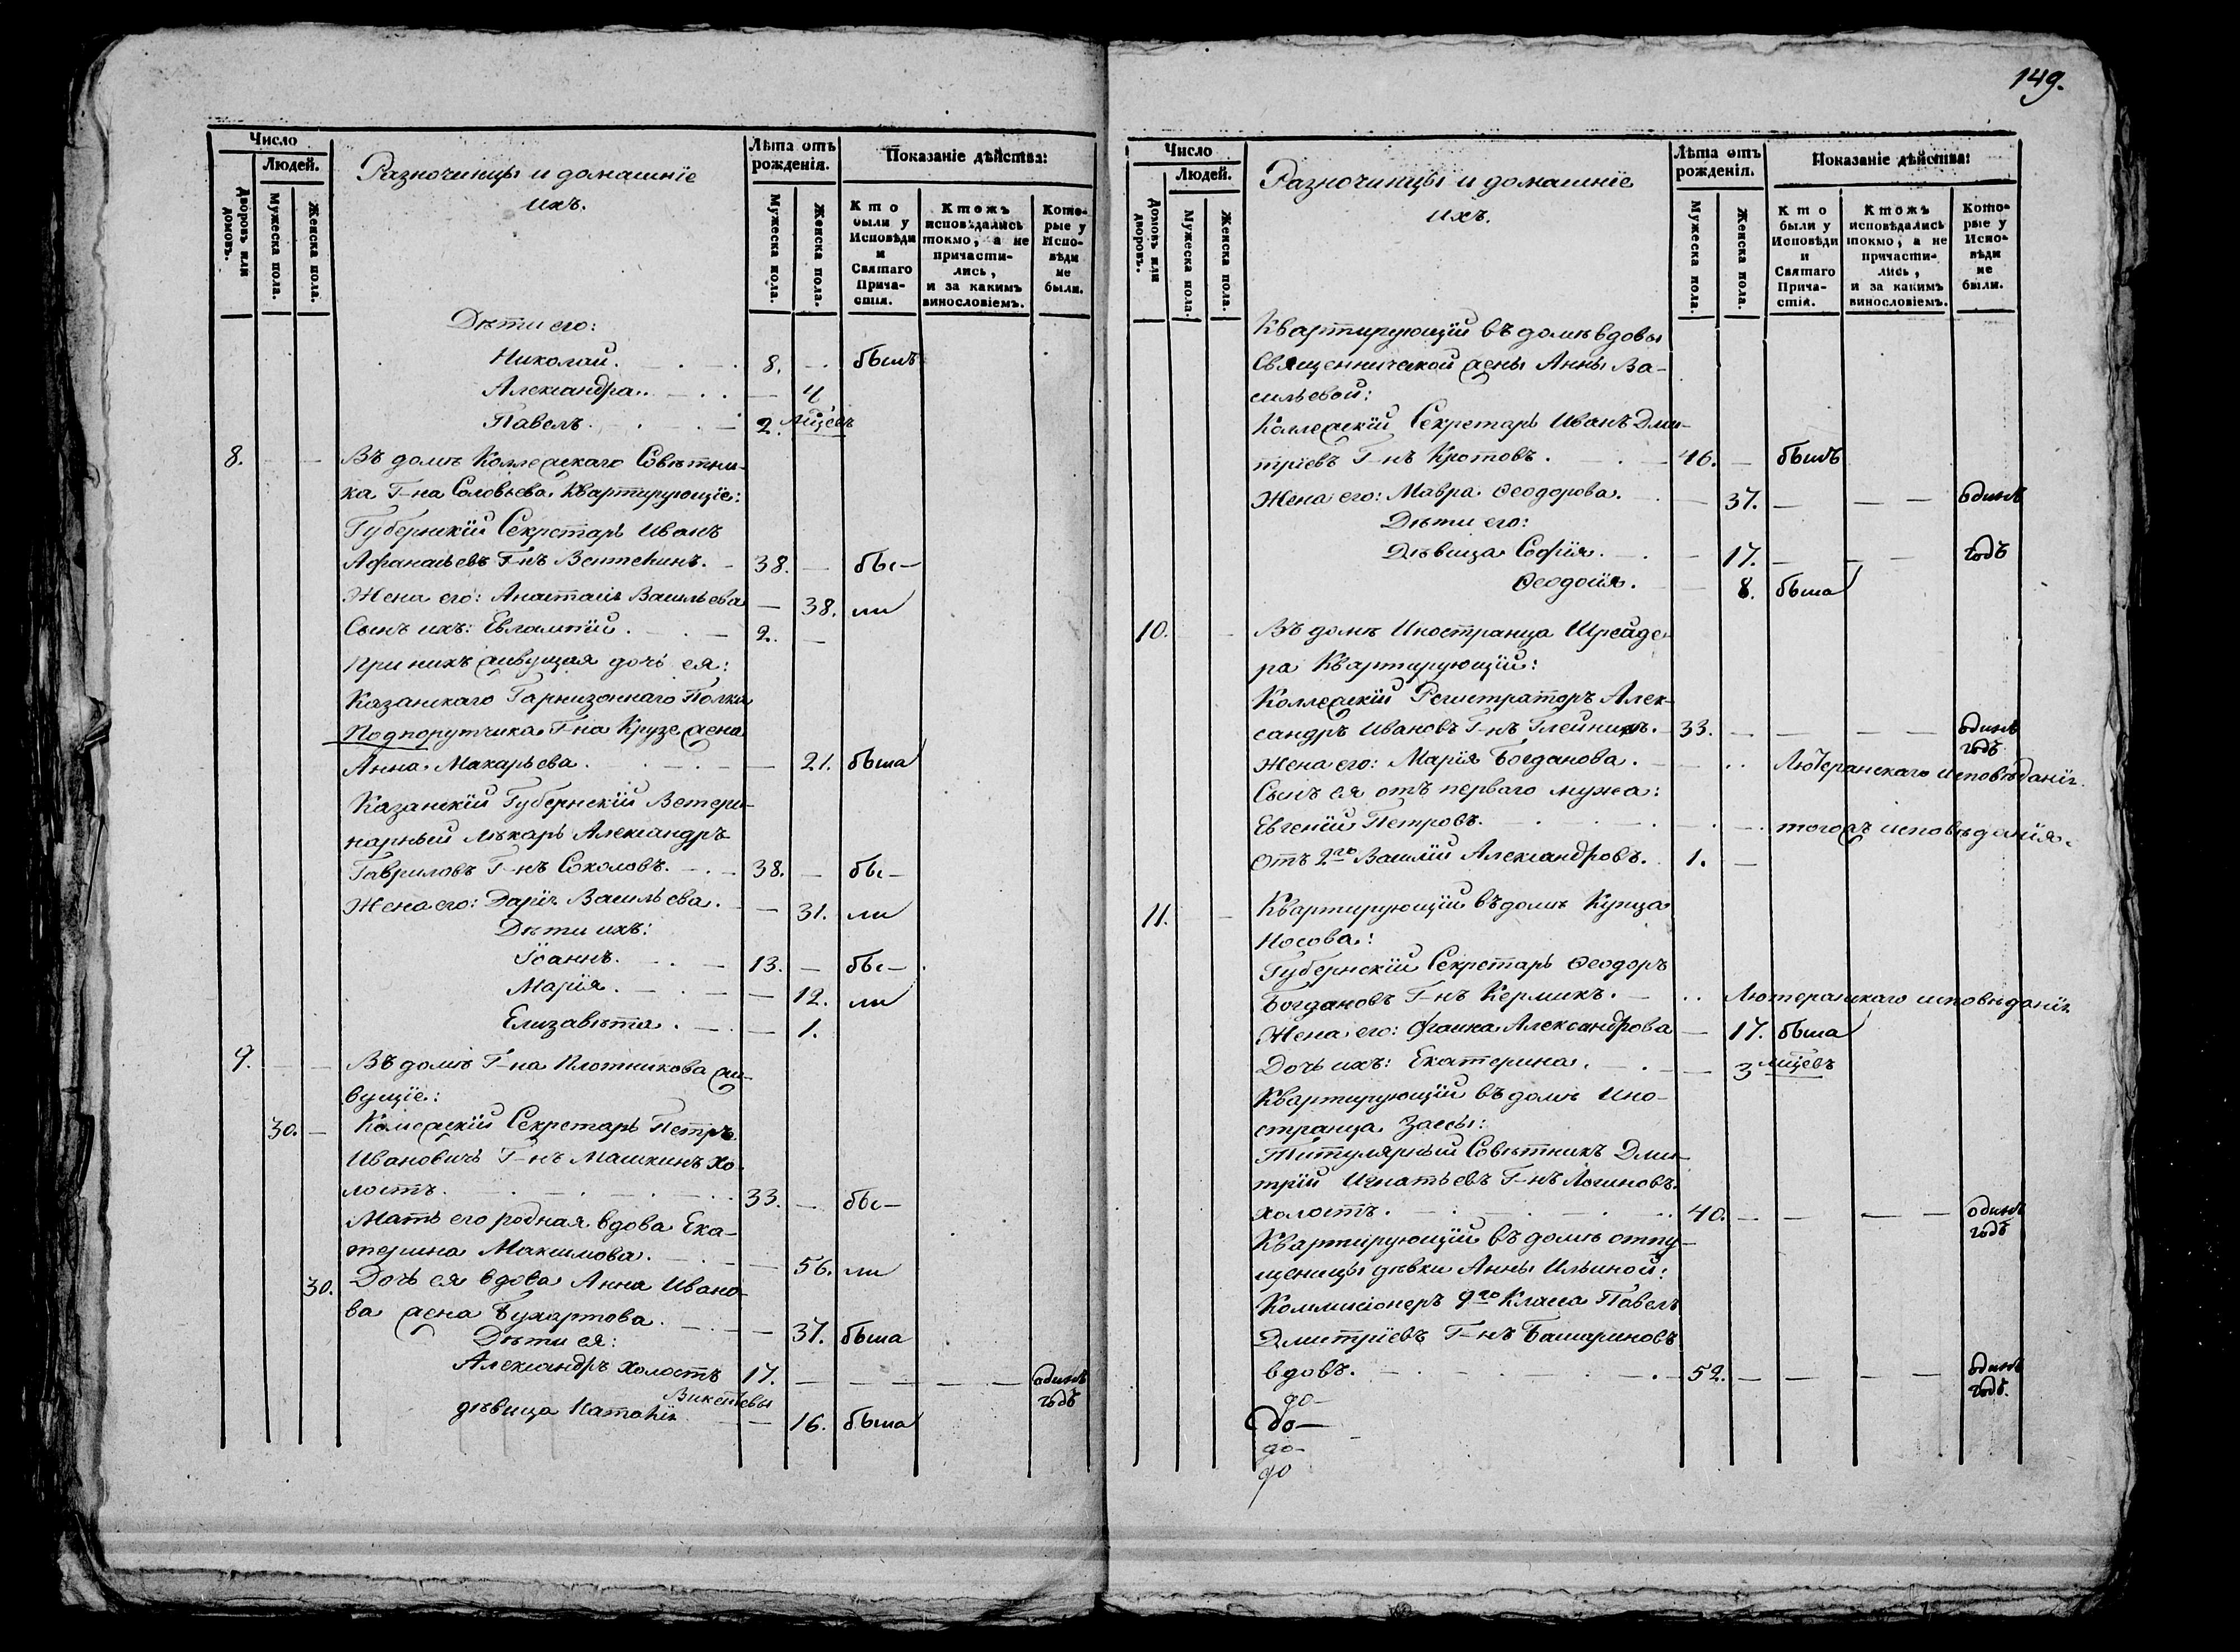 149.
Число
Людей.
Дворовъ или домовъ.
Мужеска пола.
Женска пола.
Разночинцы и домашніе
ихъ.
Лѣта отъ рожденія.
Мужеска пола.
Женска пола.
Показаніе дѣйства:
Кто были у Исповѣди и Святаго Причастія.
Ктожъ исповѣдались токмо, а не причастились, и за какимъ винословіемъ.
Которые у Исповѣди не были.
Дѣти его:
Николай. 8. былъ
Александра. 4
Павелъ. 2.
8. Въ домѣ Коллежскаго Совѣтни-
ка Г-на Соловьева Квартирующіе:
Губернскій Секретарь Иванъ
Афанасьевъ Г-нъ 38. — бы-
Жена его: Анастасія Васильева — 38. ли
Сынъ ихъ: Евлампій. 2. —
При нихъ живущая дочь ея:
Казанскаго Гарнизоннаго Полка
Подпорутчика Г-на Крузе жена
Анна Макарьева. — 21. была
Казанскій Губернскій Ветери-
нарный лѣкарь Александръ
Гавриловъ Г-нъ Соколовъ. 38. — бы-
Жена его: Дарія Васильева. — 31. ли
Дѣти ихъ:
Іоаннъ. 13. — бы-
Марія. — 12. ли
Елизавета. — 1.
9. Въ домѣ Г-на Плотникова жи-
вущіе:
30. — Коллежскій Секретарь Петръ
Ивановичъ Г-нъ Машкинъ хо-
лостъ. 33. — бы-
Мать его родная вдова Ека-
терина Максимова. — 56. ли
30. Дочь ея вдова Анна Ивано-
ва жена Бухартова. — 37. была
Дѣти ея:
Александръ холостъ 17. — — — — одинъ годъ
Викентьевы
дѣвица Наталія — 16. была
Число
Людей.
Домовъ или дворовъ.
Мужеска пола.
Женска пола.
Разночинцы и домашніе
ихъ.
Лѣта отъ рожденія.
Мужеска пола.
Женска пола.
Показаніе дѣйства:
Кто были у Исповѣди и Святаго Причастія.
Ктожъ исповѣдались токмо, а не причастились, и за какимъ винословіемъ.
Которые у Исповѣди не были.
Квартирующій въ домѣ вдовы
Священнической жены Анны Ва-
сильевой:
Коллежскій Секретарь Иванъ Дми-
тріевъ Г-нъ Кротовъ. 46. — былъ
Жена его: Мавра Ѳеодорова. — 37. — — — одинъ
Дѣти его:
Дѣвица Софія. — 17. — — — годъ
Ѳеодосія. — 8. была
10. Въ домѣ Иностранца Шрейде-
ра Квартирующій:
Коллежскій Регистраторъ Алек-
сандръ Ивановъ Г-нъ 33. — — — — одинъ годъ
Жена его: Марія Богданова. — Лютеранскаго исповѣданія.
Сынъ ея отъ перваго мужа:
Евгеній Петровъ. — тогожъ исповѣданія.
отъ 2го Василій Александровъ. 1. —
11. Квартирующій въ домѣ Купца
Носова:
Губернскій Секретарь Ѳеодоръ
Богдановъ Г-нъ Лютеранскаго исповѣданія
Жена его: Фаина Александрова — 17. была
Дочь ихъ: Екатерина. — 3
Квартирующій въ домѣ Ино-
странца Зассы:
Титулярный Совѣтникъ Дми-
трій Игнатьевъ Г-нъ Логиновъ
холостъ. 40. — — — — одинъ годъ
Квартирующій въ домѣ отпу-
щеницы дѣвки Анны Ильиной:
Коммисіонеръ 9го Класса Павелъ
Дмитріевъ Г-нъ Башариновъ
вдовъ. 52. — — — — одинъ годъ.
до-
до-
до-
до